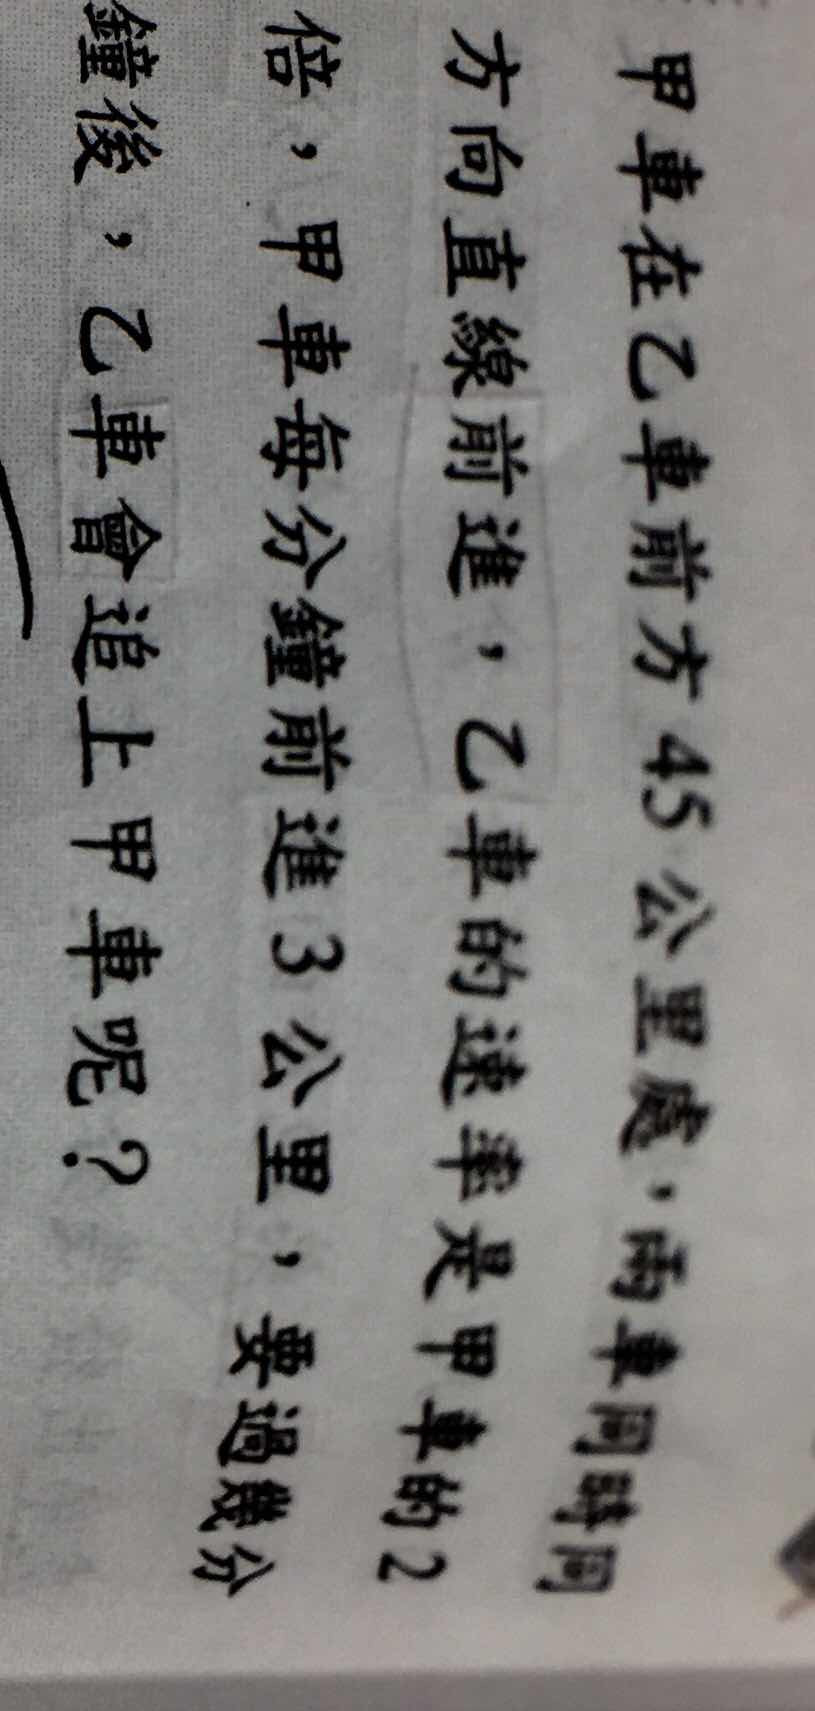 甲車在乙車前方45公里處，兩車同時同
方向直線前進，乙車的速率是甲車的2
倍，甲車每分鐘前進3公里，要過幾分
鐘後，乙車會追上甲車呢？